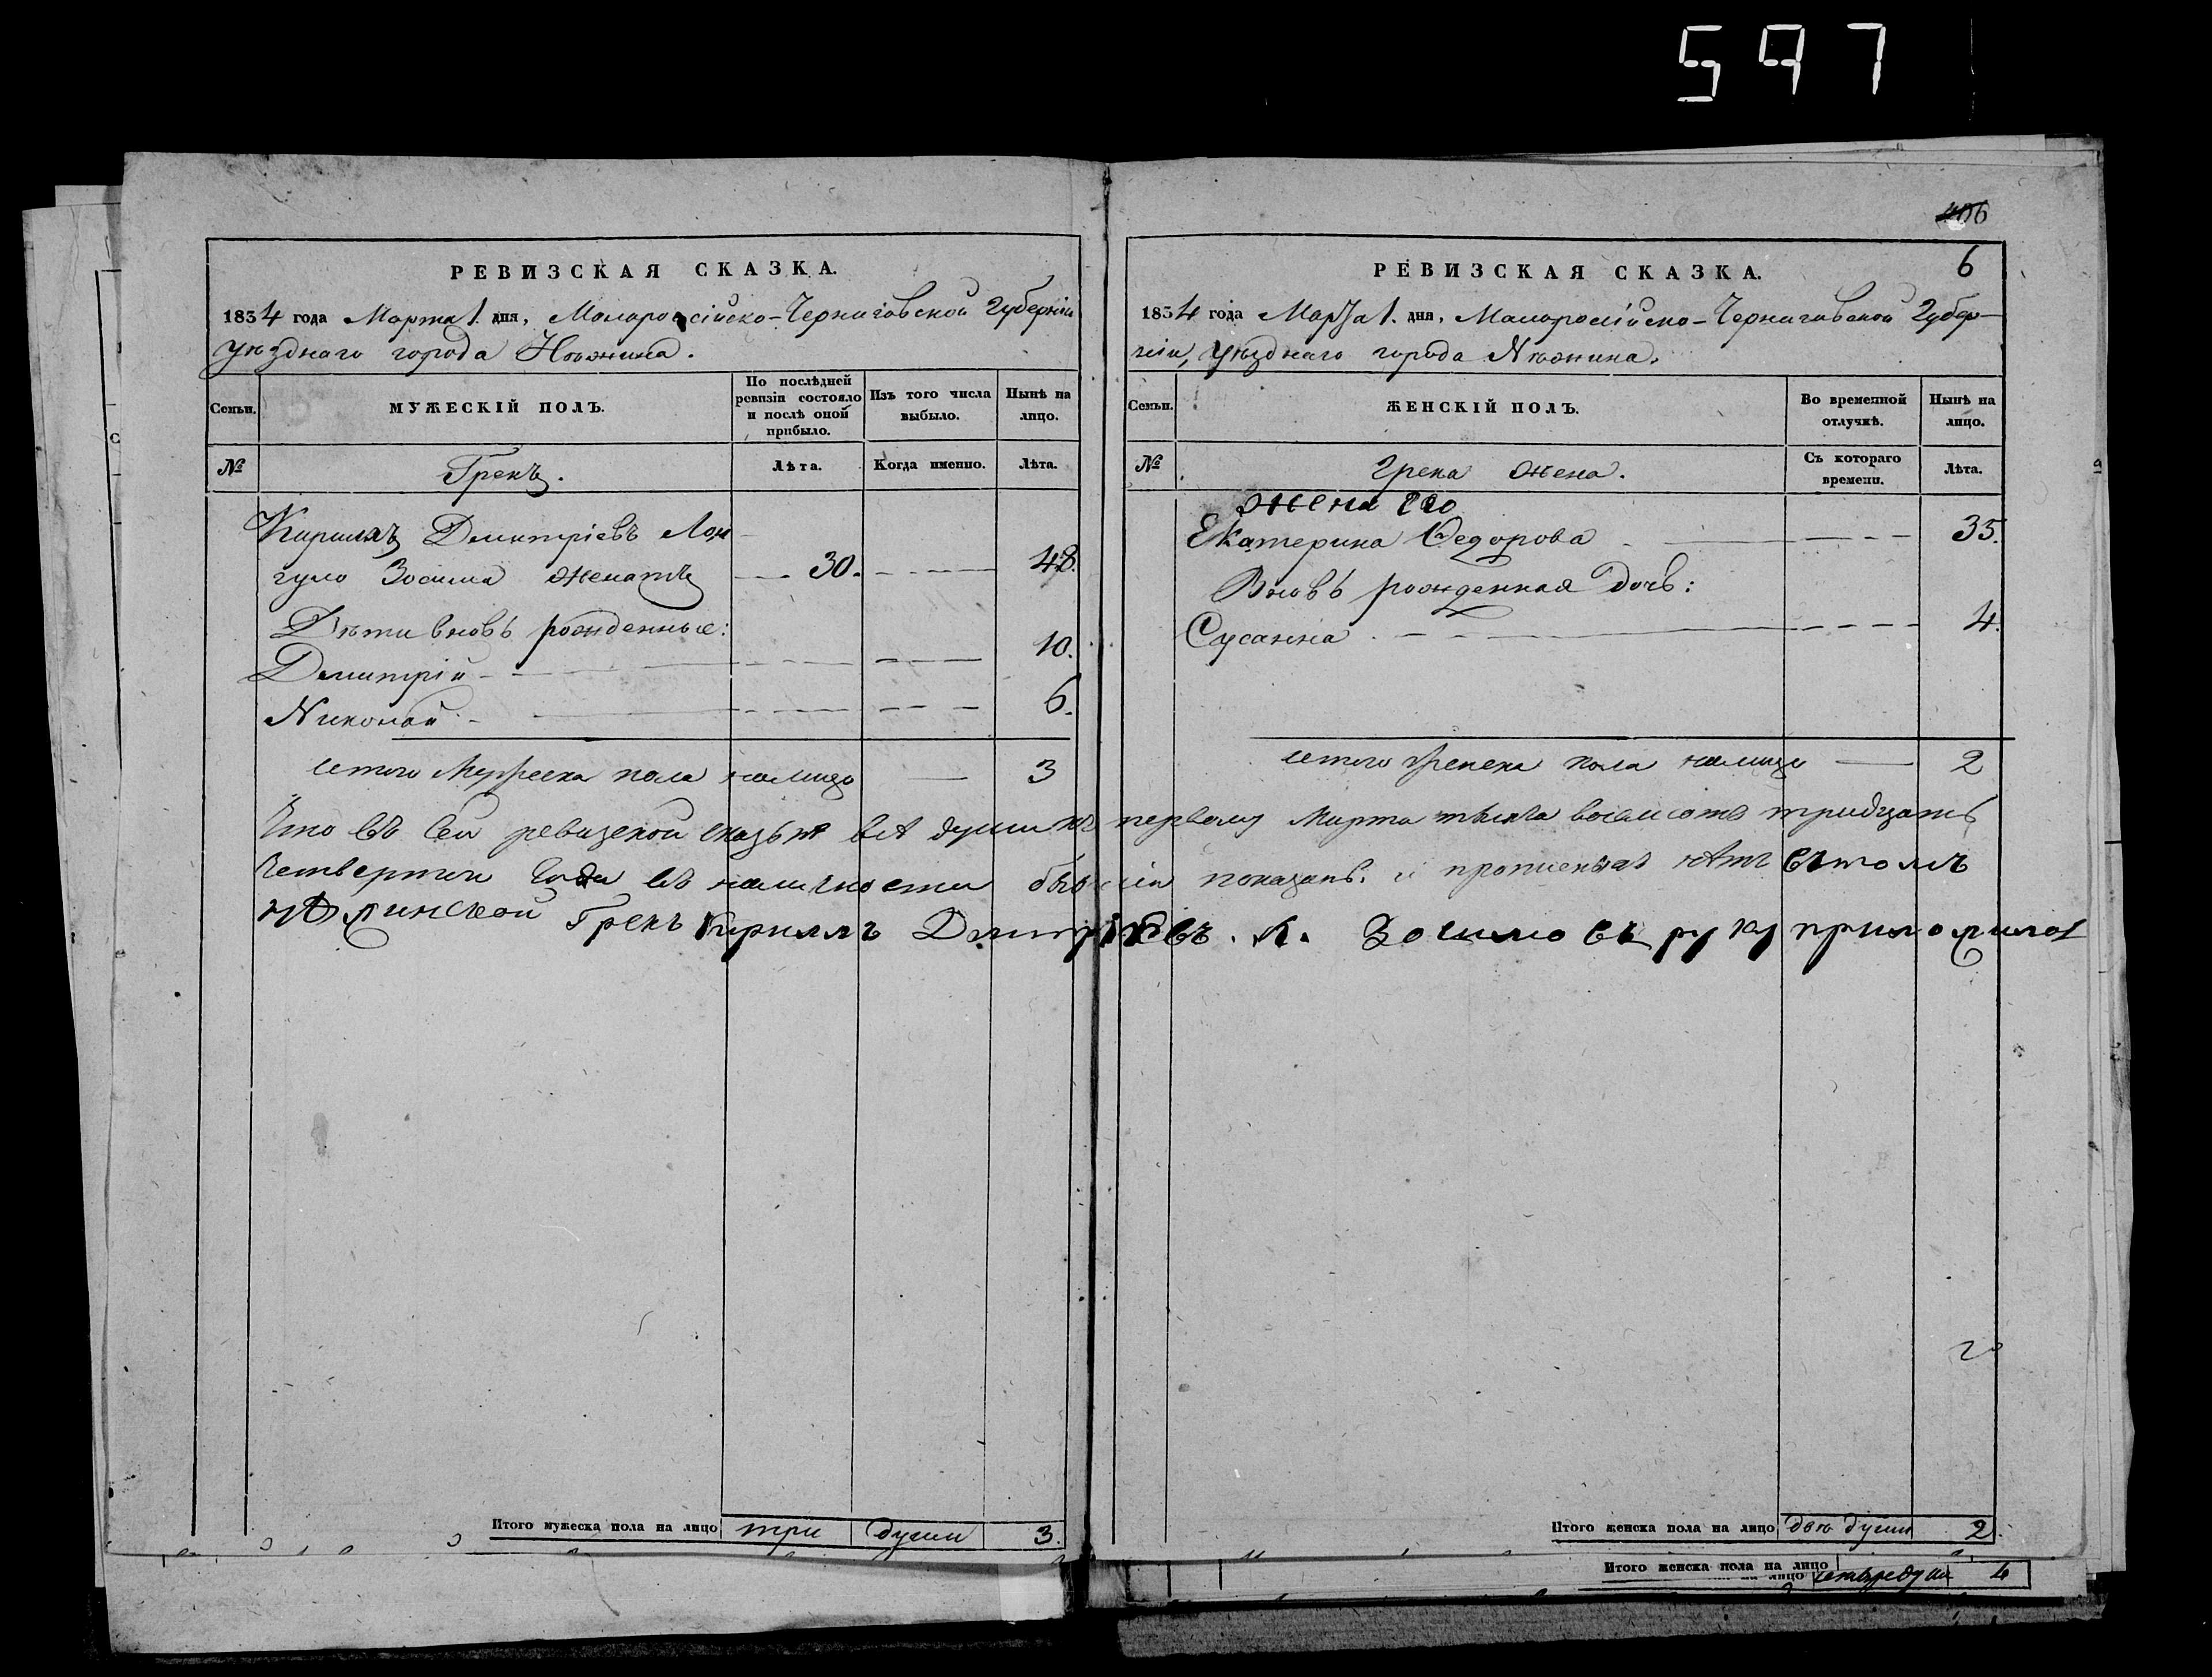 597
406
РЕВИЗСКАЯ СКАЗКА.
1834 года Марта 1. дня, Малоросійско-Черниговской Губерніи
уѣзднаго города Нѣжина.
Семьи.
МУЖЕСКІЙ ПОЛЪ.
По послѣдней ревизіи состояло и послѣ оной прибыло.
Изъ того числа выбыло.
Нынѣ на лицо.
№
Грекъ.
Лѣта.
Когда именно.
Лѣта.
Кириллъ Дмитріевъ Лон
гуло Зосима женатъ 30. 48.
Дѣти вновь рожденные:
Дмитрій 10.
Николай 6.
итого Мужеска пола налицо 3
6
РЕВИЗСКАЯ СКАЗКА.
1834 года Марта 1. дня, Малоросійско-Черниговской Губер-
ніи, уѣзднаго города Нѣжина.
Семьи.
ЖЕНСКІЙ ПОЛЪ.
Во временной отлучкѣ.
Нынѣ на лицо.
№
Грека жена.
Съ котораго времени.
Лѣта.
жена его
Екатерина Федорова 35.
Вновь рожденная дочь:
Сусанна 4.
итого Женска пола налицо 2
Что въ сей ревизской сказкѣ всѣ души къ первому Марта тысяча восемсотъ тридцать
четвертого года въ наличности бывшіи показаны. и прописныхъ нѣтъ вътомъ
нѣжинской Грекъ Кириллъ Дмитріевъ. Л. Зосимо въ руку приложилъ
Итого мужеска пола на лицо три души 3.
Итого женска пола на лицо двѣ души 2.
Итого женска пола на лицо
на лицо четыре души 4